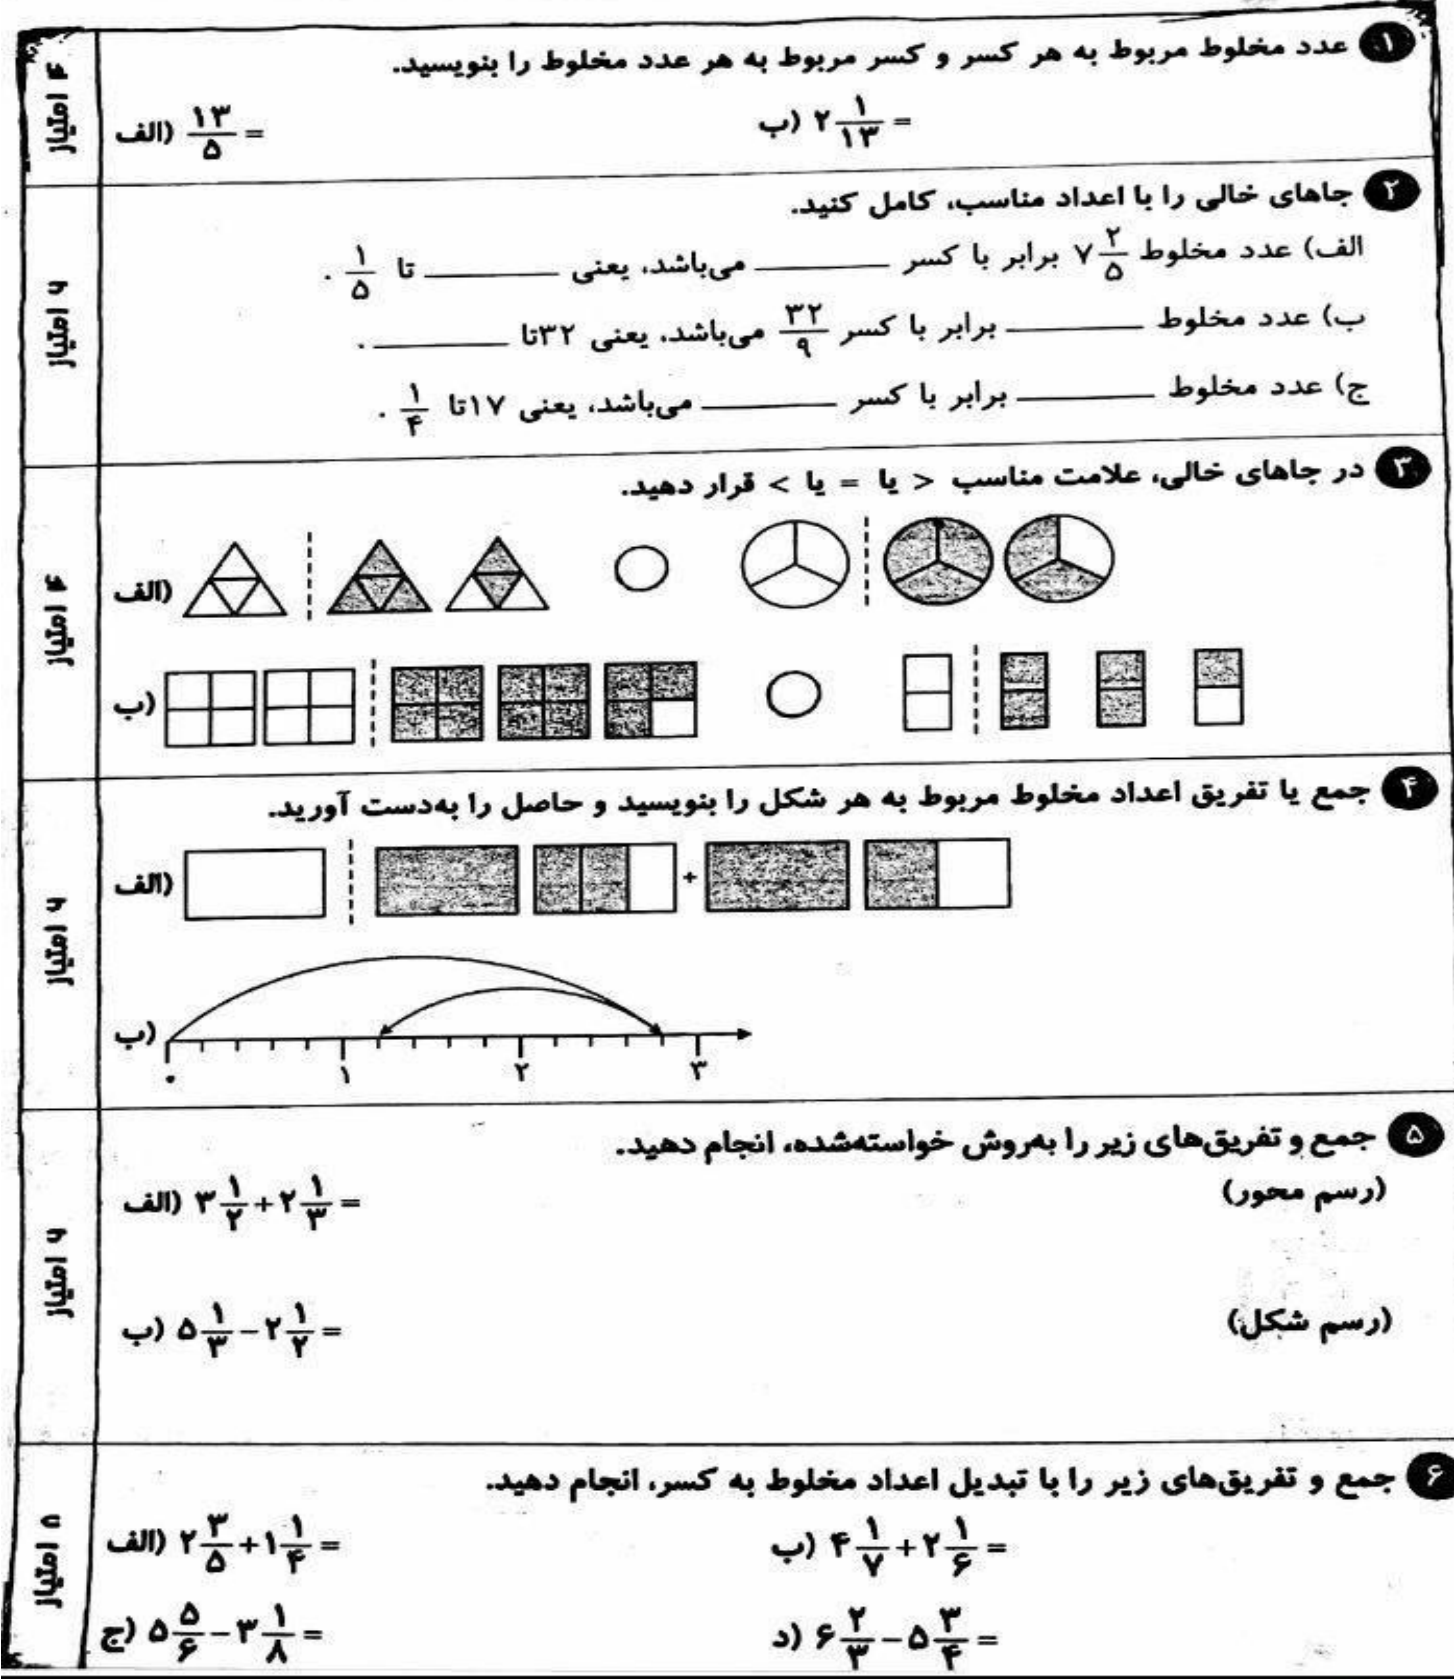 ۱ عدد مخلوط مربوط به هر کسر و کسر مربوط به هر عدد مخلوط را بنویسید.
۴ امتیاز
الف) ۱۳/۵ =
ب) ۲ ۱/۱۳ =
۲ جاهای خالی را با اعداد مناسب، کامل کنید.
۶ امتیاز
الف) عدد مخلوط ۷ ۲/۵ برابر با کسر ــــــــ می‌باشد، یعنی ــــــــ تا ۱/۵ .
ب) عدد مخلوط ــــــــ برابر با کسر ۳۲/۹ می‌باشد، یعنی ۳۲تا ــــــــ .
ج) عدد مخلوط ــــــــ برابر با کسر ــــــــ می‌باشد، یعنی ۱۷تا ۱/۴ .
۳ در جاهای خالی، علامت مناسب < یا = یا > قرار دهید.
۴ امتیاز
الف)
ب)
۴ جمع یا تفریق اعداد مخلوط مربوط به هر شکل را بنویسید و حاصل را به‌دست آورید.
۶ امتیاز
الف) +
ب)
۰ ۱ ۲ ۳
۵ جمع و تفریق‌های زیر را به‌روش خواسته‌شده، انجام دهید.
۶ امتیاز
الف) ۳ ۱/۲ + ۲ ۱/۳ =
(رسم محور)
ب) ۵ ۱/۳ − ۲ ۱/۲ =
(رسم شکل)
۶ جمع و تفریق‌های زیر را با تبدیل اعداد مخلوط به کسر، انجام دهید.
۸ امتیاز
الف) ۲ ۳/۵ + ۱ ۱/۴ =
ب) ۴ ۱/۷ + ۲ ۱/۶ =
ج) ۵ ۵/۶ − ۳ ۱/۸ =
د) ۶ ۲/۳ − ۵ ۳/۴ =